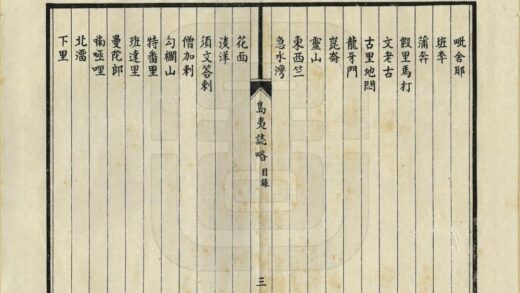 毗舍耶
班卒
蒲奔
假里馬打
文老古
古里地悶
龍牙門
崑崙
靈山
東西竺
急水灣
島夷誌略 目錄 三
花面
淡洋
須文答剌
僧加剌
勾欄山
特番里
班達里
曼陀郎
喃啞哩
北溜
下里